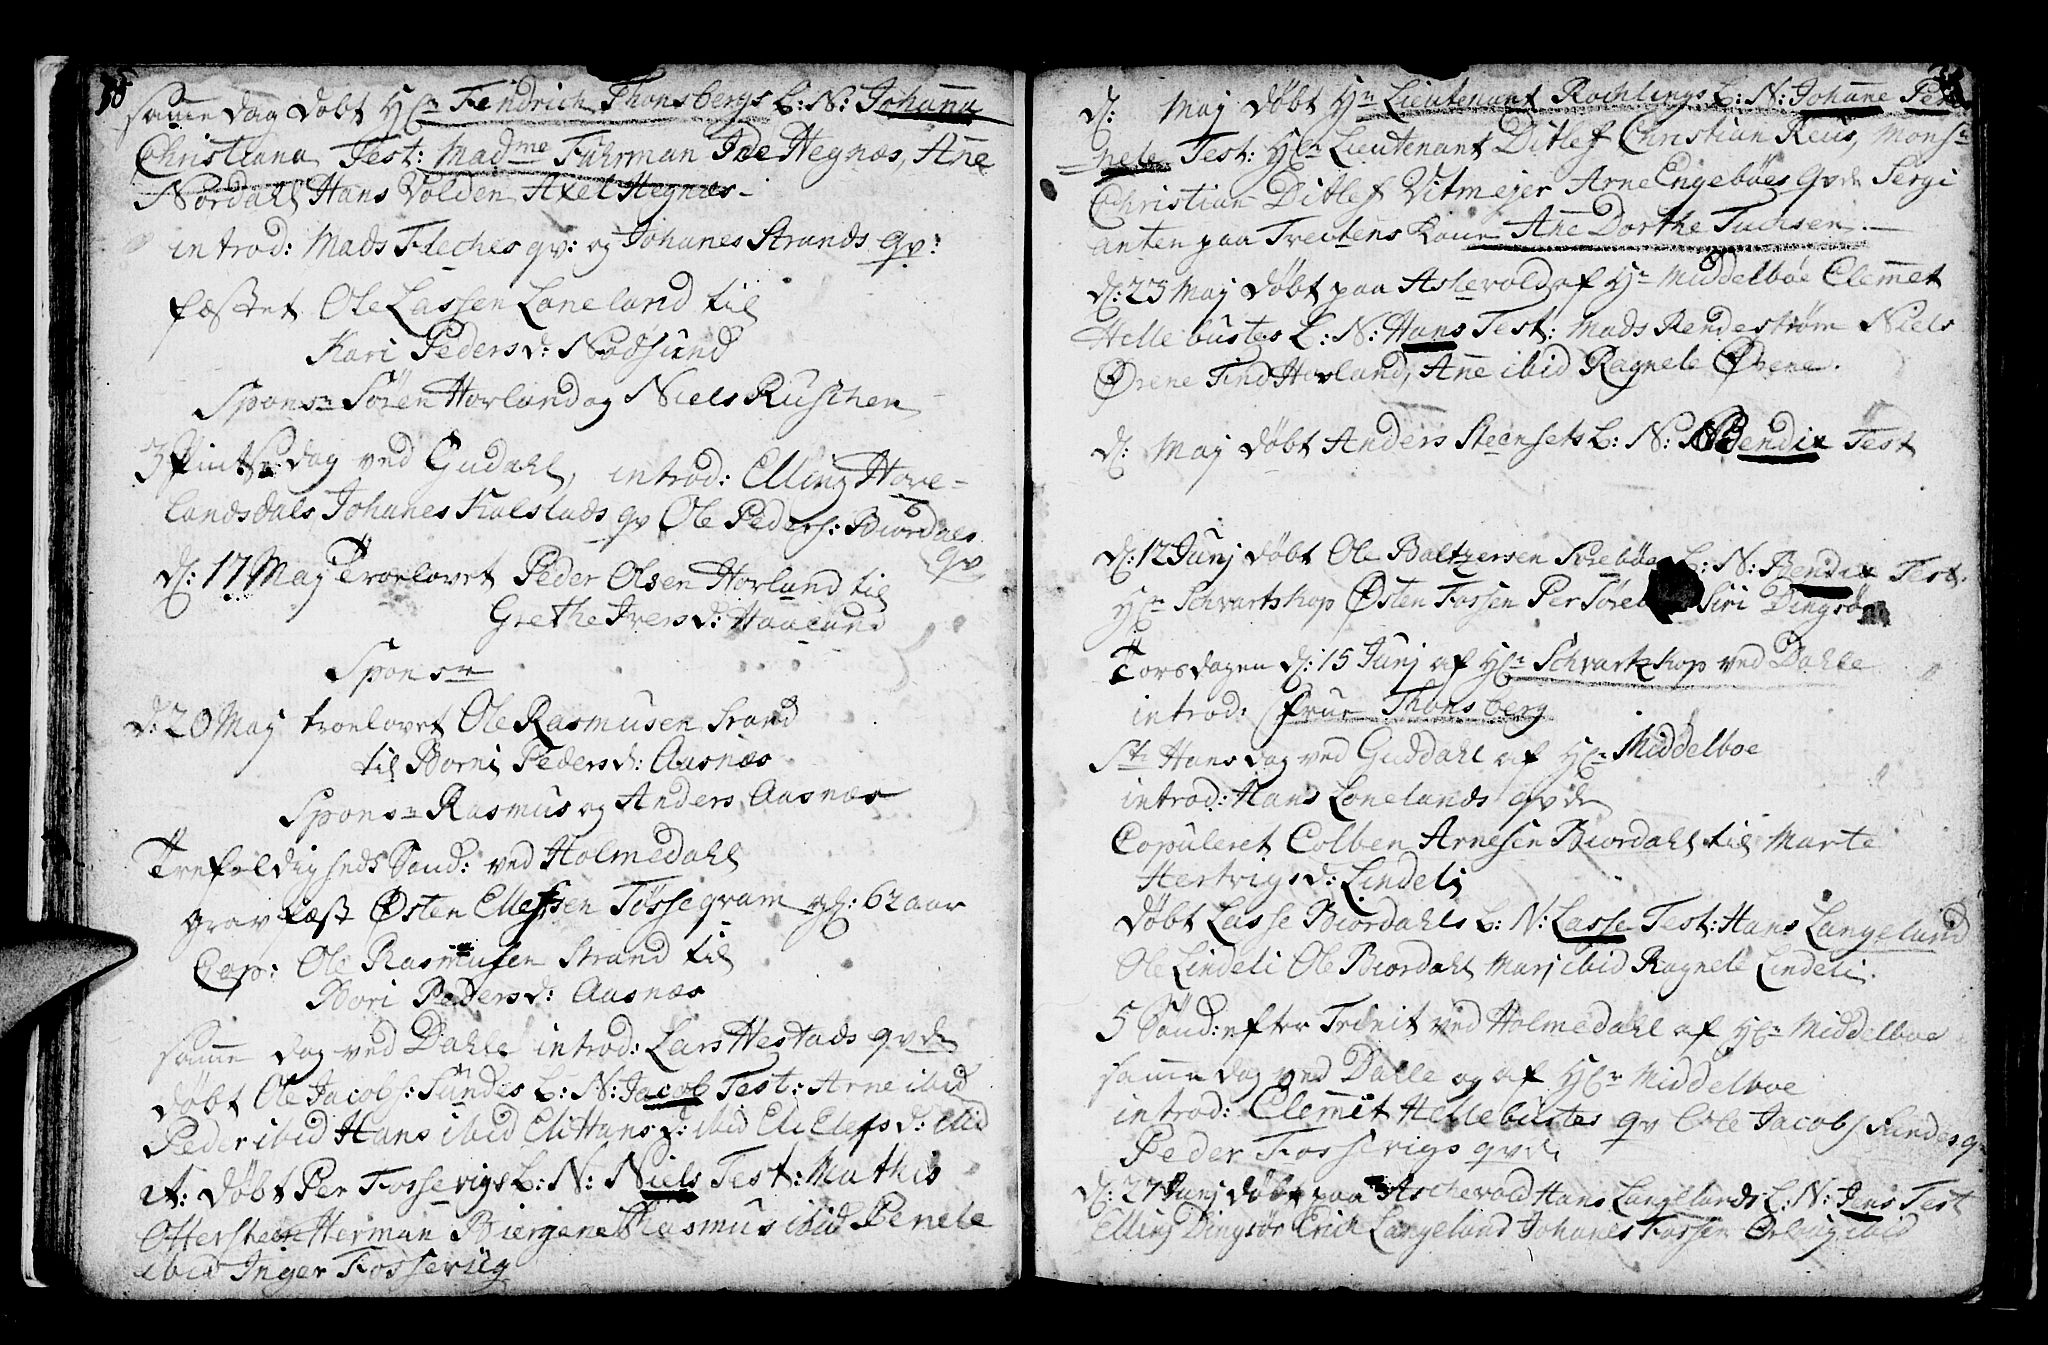 same dag døbt Hr: Fendrich Thonsbergs b: N: Johanna
Christiana Test: Madme Fuhrman Ide Hegnæs, Ane
Nordahl Hans Volden Axel Hegnæs
introd: Mads Fleches qv: og Johanes Strands qv:
fæstet Ole Lassen Loneland til
Kari Pedersd: Nodsund
Sponsr Sören Horland og Niels Ruschen
3 Pintsedag ved Gudahl, introd: Elling Hove-
landsdals Johanes Kalstads qv Ole Peders: Biordals
qv
d: 17 Maj Troelovet Peder Olsen Horland til
Grethe Ivers d: Haaland
Sponsr
d: 20 Maj troelovet Ole Rasmusen Strand
til Borni Peders d: Aasnæs
Sponsr Rasmus og Anders Aasnæs
Trefoldigheds Sønd: ved Holmedahl
gravfæst Østen Ellefsen Tøssegram gl: 62 aar
Cop: Ole Rasmusen Strand til
Bori Peders d: Aasnæs
same dag ved Dahle introd: Lars Hestads qvde
døbt Ole Jacobs: Sundes b: N: Jacob Test: Arne ibid
Peder ibid Hans ibid Eli Hans d: ibid Eli Elefs d: ibid
it: døbt Per Fosserigs b: N: Niels Test: Mathis
Ottersteen Herman Biergene Rasmus ibid Penele
ibid Inger Fosseriig
d: Maj døbt Hr Lieutenant Rochlings b: N: Johane Per
nele Test: Hr Lieutenant Ditlef Christian Reus, Monsr
Christian Ditlef Vitmejer Arne Engebøes qvde Sergi
anten paa Tredtens Kone Ane Dorthe Tuchsen.
d: 23 Maj døbt paa Askevold af Hr Middelboe Clemet
Hellebustes b: N: Hans Test: Mads Rendestrøm Niels
Ørene Find Horland, Ane ibid Ragnele Ørene.
d: Maj døbt Anders Steensets b: N: Bendix Test
d: 12 Junj døbt Ole Baltzersen Sørebøes b: N: Bendix Test.
Hr Schvartskop Østen Fossen Per Siri Dingsør
Torsdagen d: 15 Junj af Hr Schvartzkop ved Dahle
introd: frue Thonsberg
St Hans dag ved Guddahl af Hr Middelboe
introd: Hans Lonelands qvde
Copuleret Colben Arnesen Biordahl til Marte
Hertvigs d: Lindeli
døbt Lasse Biordahls b: N: Lasse Test: Hans Langeland
Ole Lindeli Ole Biordahl Marj ibid Ragnele Lindeli.
5 Sönd: efter Trinit ved Holmedahl af Hr Middelboe
same dag ved Dahle og af Hr Middelboe
introd: Clemet Hellebustes qv Ole Jacobs Sundes qv
Peder Fosserigs qvde
d: 27 Junj døbt paa Aschevold Hans Langelands b: N: Jens Test
Elling Dingsør Erick Langeland Johanes Fossen ibid